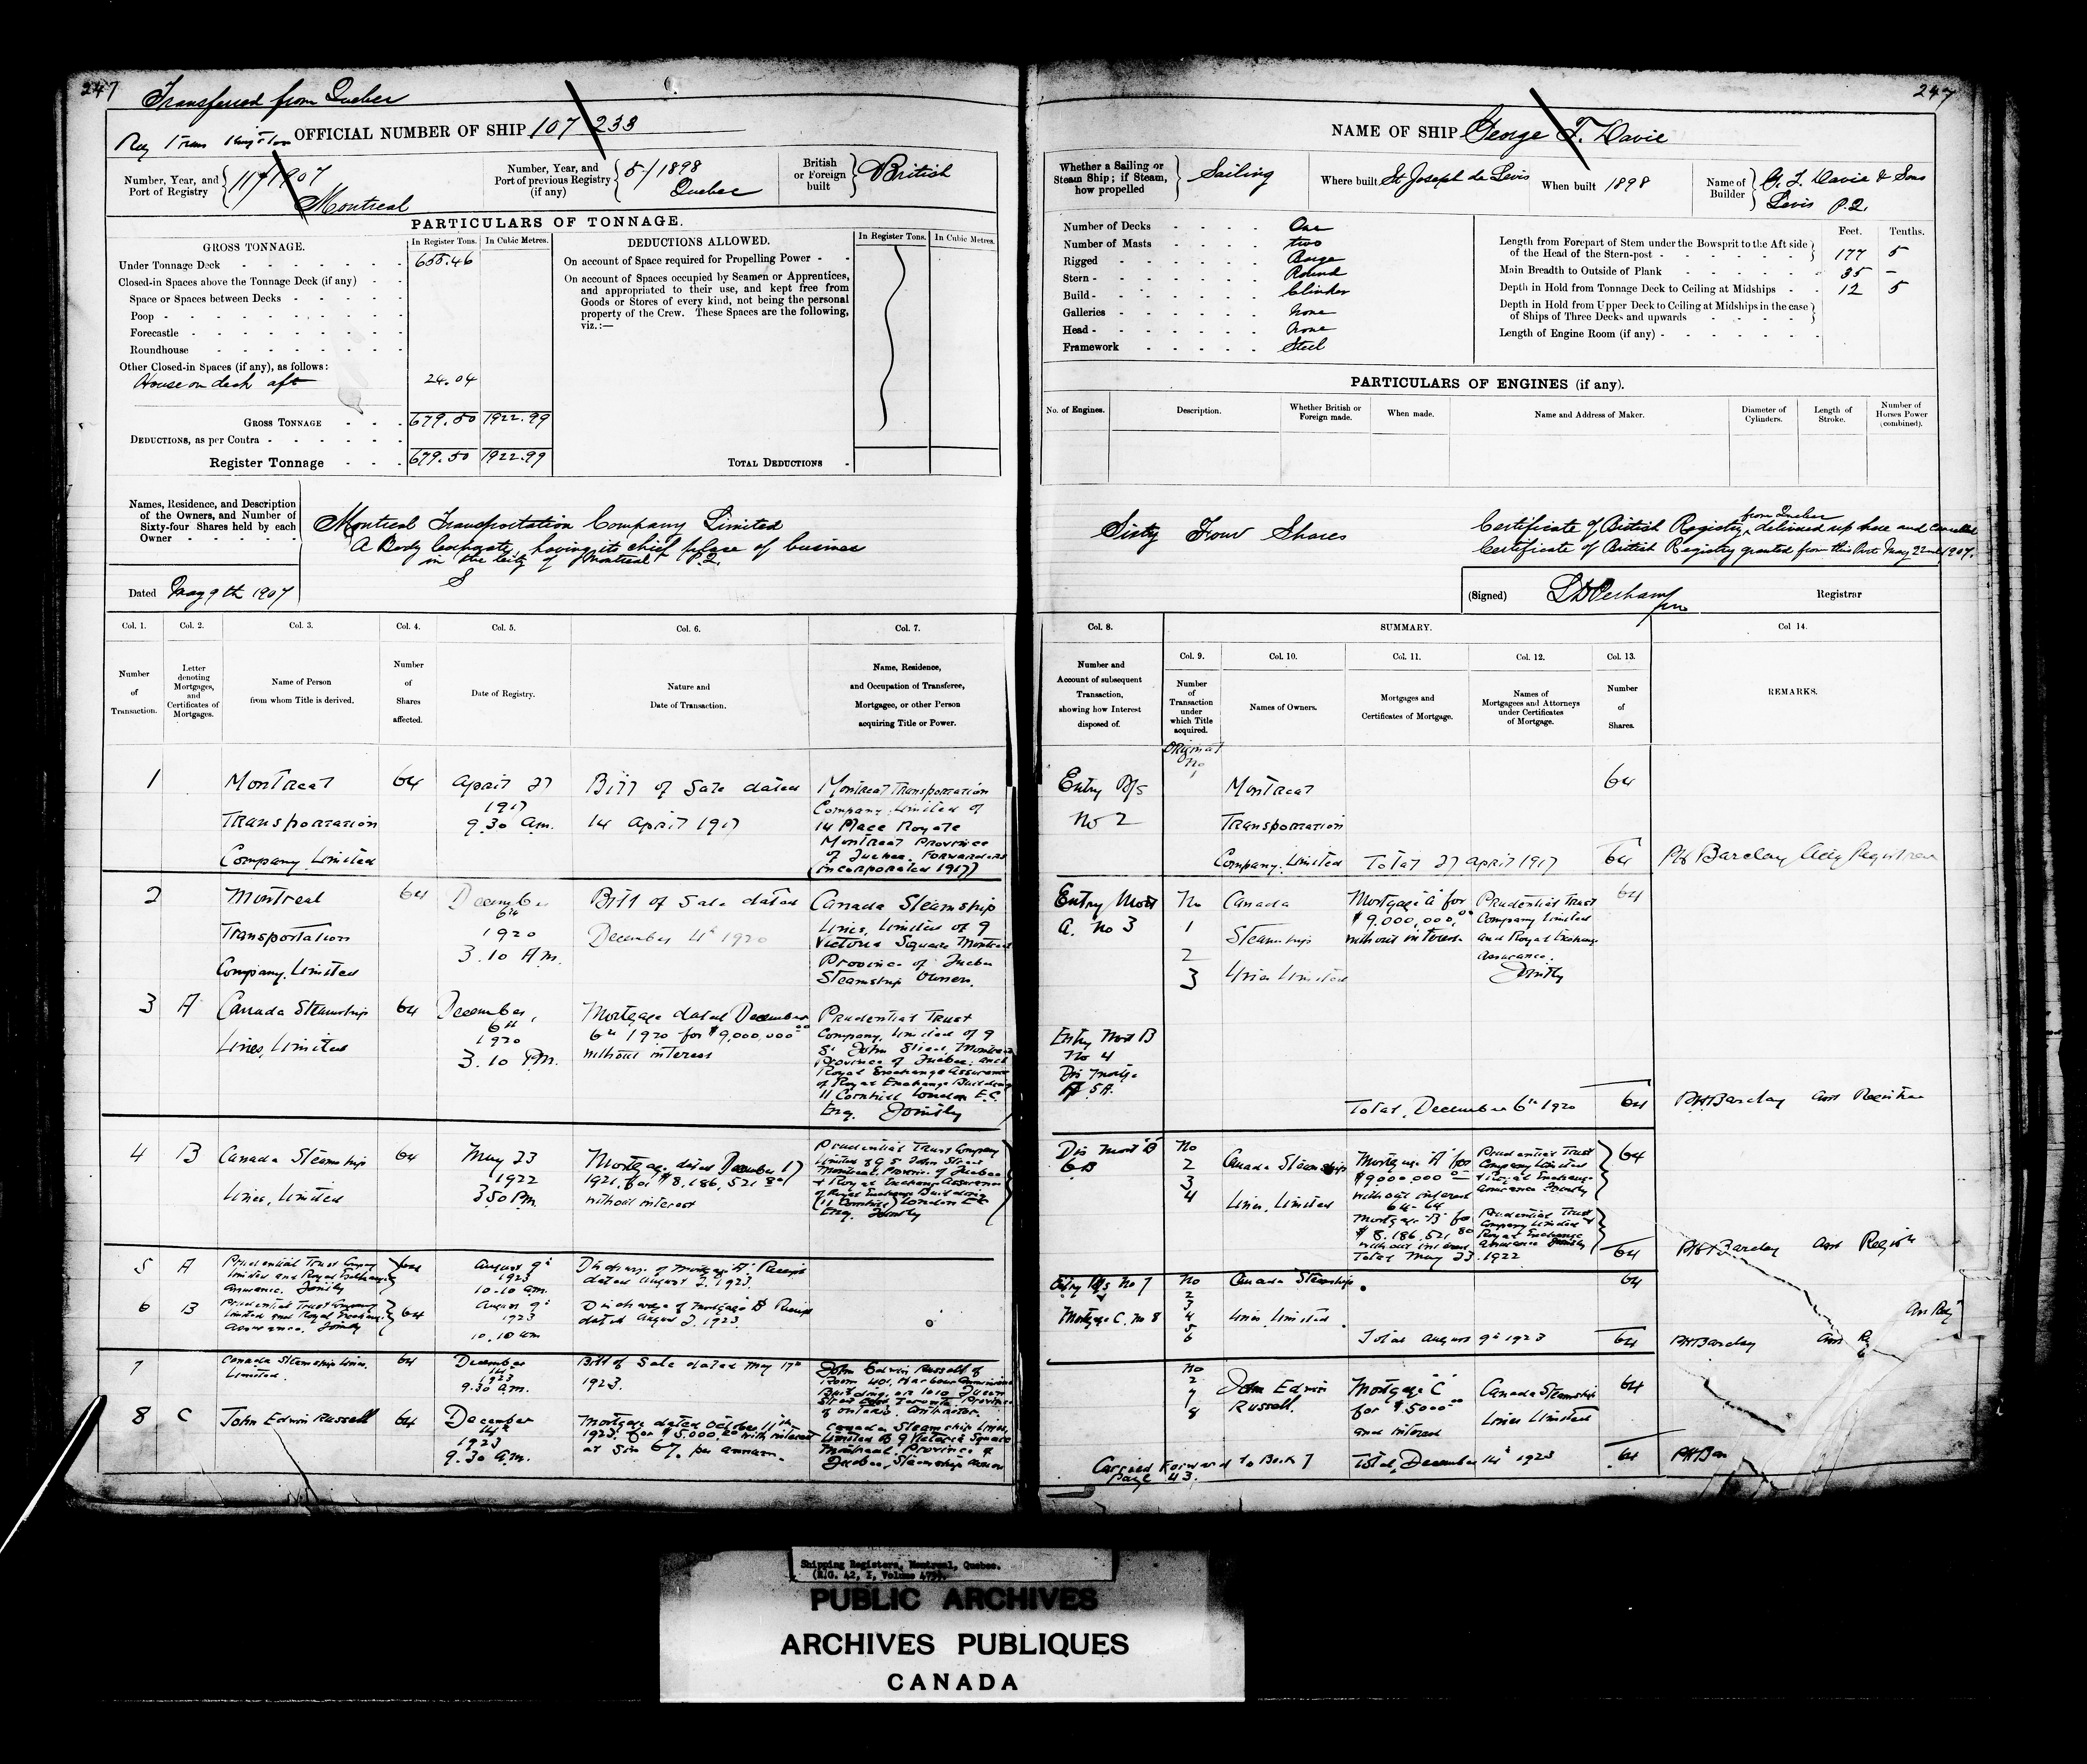 247
Transferred from Quebec
OFFICIAL NUMBER OF SHIP 107 233
Number, Year, and Port of Registry 117/1907 Montreal
Number, Year, and Port of previous Registry (if any) 5/1898 Quebec
British or Foreign built British
PARTICULARS OF TONNAGE.
GROSS TONNAGE.
In Register Tons.
In Cubic Metres.
Under Tonnage Deck 655.46
Closed-in Spaces above the Tonnage Deck (if any)
Space or Spaces between Decks
Poop
Forecastle
Roundhouse
Other Closed-in Spaces (if any), as follows:
House on deck aft 24.04
GROSS TONNAGE 679.50 1922.99
DEDUCTIONS, as per Contra
Register Tonnage 679.50 1922.99
DEDUCTIONS ALLOWED.
In Register Tons.
In Cubic Metres.
On account of Space required for Propelling Power
On account of Spaces occupied by Seamen or Apprentices,
and appropriated to their use, and kept free from
Goods or Stores of every kind, not being the personal
property of the Crew. These Spaces are the following,
viz.:—
TOTAL DEDUCTIONS
Names, Residence, and Description
of the Owners, and Number of
Sixty-four Shares held by each
Owner
Montreal Transportation Company Limited
A Body Corporate, having its chief place of business
in the City of Montreal P.Q.
Dated May 9th 1907
Col. 1. Col. 2. Col. 3. Col. 4. Col. 5. Col. 6. Col. 7.
Number of Transaction.
Letter denoting Mortgages, and Certificates of Mortgages.
Name of Person from whom Title is derived.
Number of Shares affected.
Date of Registry.
Nature and Date of Transaction.
Name, Residence, and Occupation of Transferee, Mortgagee, or other Person acquiring Title or Power.
1 Montreal Transportation Company Limited 64 April 27 1917 9.30 am. Bill of Sale dated 14 April 1917
Montreal Transportation
Company Limited of
14 Place Royale
Montreal Province
of Quebec. Forwarders
(incorporated 1917)
2 Montreal Transportation Company, Limited 64 December 6th 1920 3.10 P.M. Bill of Sale dated December 4th 1920
Canada Steamship
Lines, Limited of 9
Victoria Square Montreal
Province of Quebec
Steamship Owners.
3 A Canada Steamship Lines, Limited 64 December 6th 1920 3.10 P.M. Mortgage dated December 6th 1920 for $9,000,000.00 without interest
Prudential Trust
Company, Limited of 9
St John Street Montreal
Province of Quebec and
Royal Exchange Assurance
of Royal Exchange Building
11 Cornhill London E.C.
Eng. Jointly
4 B Canada Steamship Lines, Limited 64 May 23 1922 3.50 P.M. Mortgage dated December 17 1921, for $8,186,521.80 without interest
Prudential Trust Company
Limited of 9 St John Street
Montreal, Province of Quebec
& Royal Exchange Assurance
of Royal Exchange Building
(11 Cornhill) London E.C.
Eng. Jointly
5 A Prudential Trust Company Limited and Royal Exchange Assurance. Jointly 64 August 9th 1923 10.10 am. Discharge of Mortgage "A". Receipt dated August 2. 1923.
6 B Prudential Trust Company Limited and Royal Exchange Assurance. Jointly 64 August 9th 1923 10.10 am Discharge of Mortgage B Receipt dated August 2. 1923.
7 Canada Steamship Lines. Limited. 64 December 14th 1923 9.30 am. Bill of Sale dated May 17th 1923.
John Edwin Russell of
Room 401, Harbour Commission
Building, on 1010 Queen
Street East Toronto Province
of Ontario. Contractor.
8 C John Edwin Russell 64 December 14th 1923 9.30 am. Mortgage dated October 11th 1923, for $5,000.00 with interest at six 6% per annum.
Canada Steamship Lines,
Limited of 9 Victoria Square
Montreal, Province of
Quebec, Steamship owners
247
NAME OF SHIP George T. Davie
Whether a Sailing or Steam Ship; if Steam, how propelled Sailing
Where built St Joseph de Levis
When built 1898
Name of Builder G. T. Davie & Sons Levis P.Q.
Number of Decks One
Number of Masts two
Rigged Barge
Stern Round
Build Clinker
Galleries None
Head None
Framework Steel
Feet. Tenths.
Length from Forepart of Stem under the Bowsprit to the Aft side
of the Head of the Stern-post 177 5
Main Breadth to Outside of Plank 35 –
Depth in Hold from Tonnage Deck to Ceiling at Midships 12 5
Depth in Hold from Upper Deck to Ceiling at Midships in the case
of Ships of Three Decks and upwards
Length of Engine Room (if any)
PARTICULARS OF ENGINES (if any).
No. of Engines.
Description.
Whether British or Foreign made.
When made.
Name and Address of Maker.
Diameter of Cylinders.
Length of Stroke.
Number of Horses Power (combined).
Sixty Four Shares
Certificate of British Registry from Quebec delivered up here and Cancelled
Certificate of British Registry granted from this Port May 22nd 1907.
(Signed) Registrar
Col. 8. SUMMARY. Col 14.
Col. 9. Col. 10. Col. 11. Col. 12. Col. 13.
Number and Account of subsequent Transaction, showing how Interest disposed of.
Number of Transaction under which Title acquired.
Names of Owners.
Mortgages and Certificates of Mortgage.
Names of Mortgagees and Attorneys under Certificates of Mortgage.
Number of Shares.
REMARKS.
Entry B/S No 2 Original No 1 Montreal Transportation Company, Limited 64
Total 27 April 1917 64 Barclay Actg Registrar
Entry Mort A. No 3 No 1 2 3 Canada Steamships Lines Limited
Mortgage A for $9,000,000.00 without interest
Prudential Trust Company Limited and Royal Exchange Assurance. Jointly 64
Entry Mort B No 4
Total, December 6th 1920 64 Barclay Asst Registrar
No 2 3 4 Canada Steamships Lines, Limited
Mortgage "A" for $9,000,000 without interest 64-64
Prudential Trust Company Limited & Royal Exchange Assurance Jointly 64
Mortgage "B" for $8,186,521.80 without interest
Prudential Trust Company Limited & Royal Exchange Assurance Jointly
Total May 23. 1922 64 Barclay Asst Regist
Entry B/S No 7 Mortgage C. No 8 No 2 3 4 5 6 Canada Steamships Lines, Limited 64
Total August 9th 1923 64 Barclay
No 2 7 8 John Edwin Russell. Mortgage "C" for $5000.00 and interest Canada Steamship Lines Limited 64
Carried Forward to Book 7 Page 43.
Total, December 14th 1923 64
Shipping Registers, Montreal, Quebec.
PUBLIC ARCHIVES
ARCHIVES PUBLIQUES
CANADA